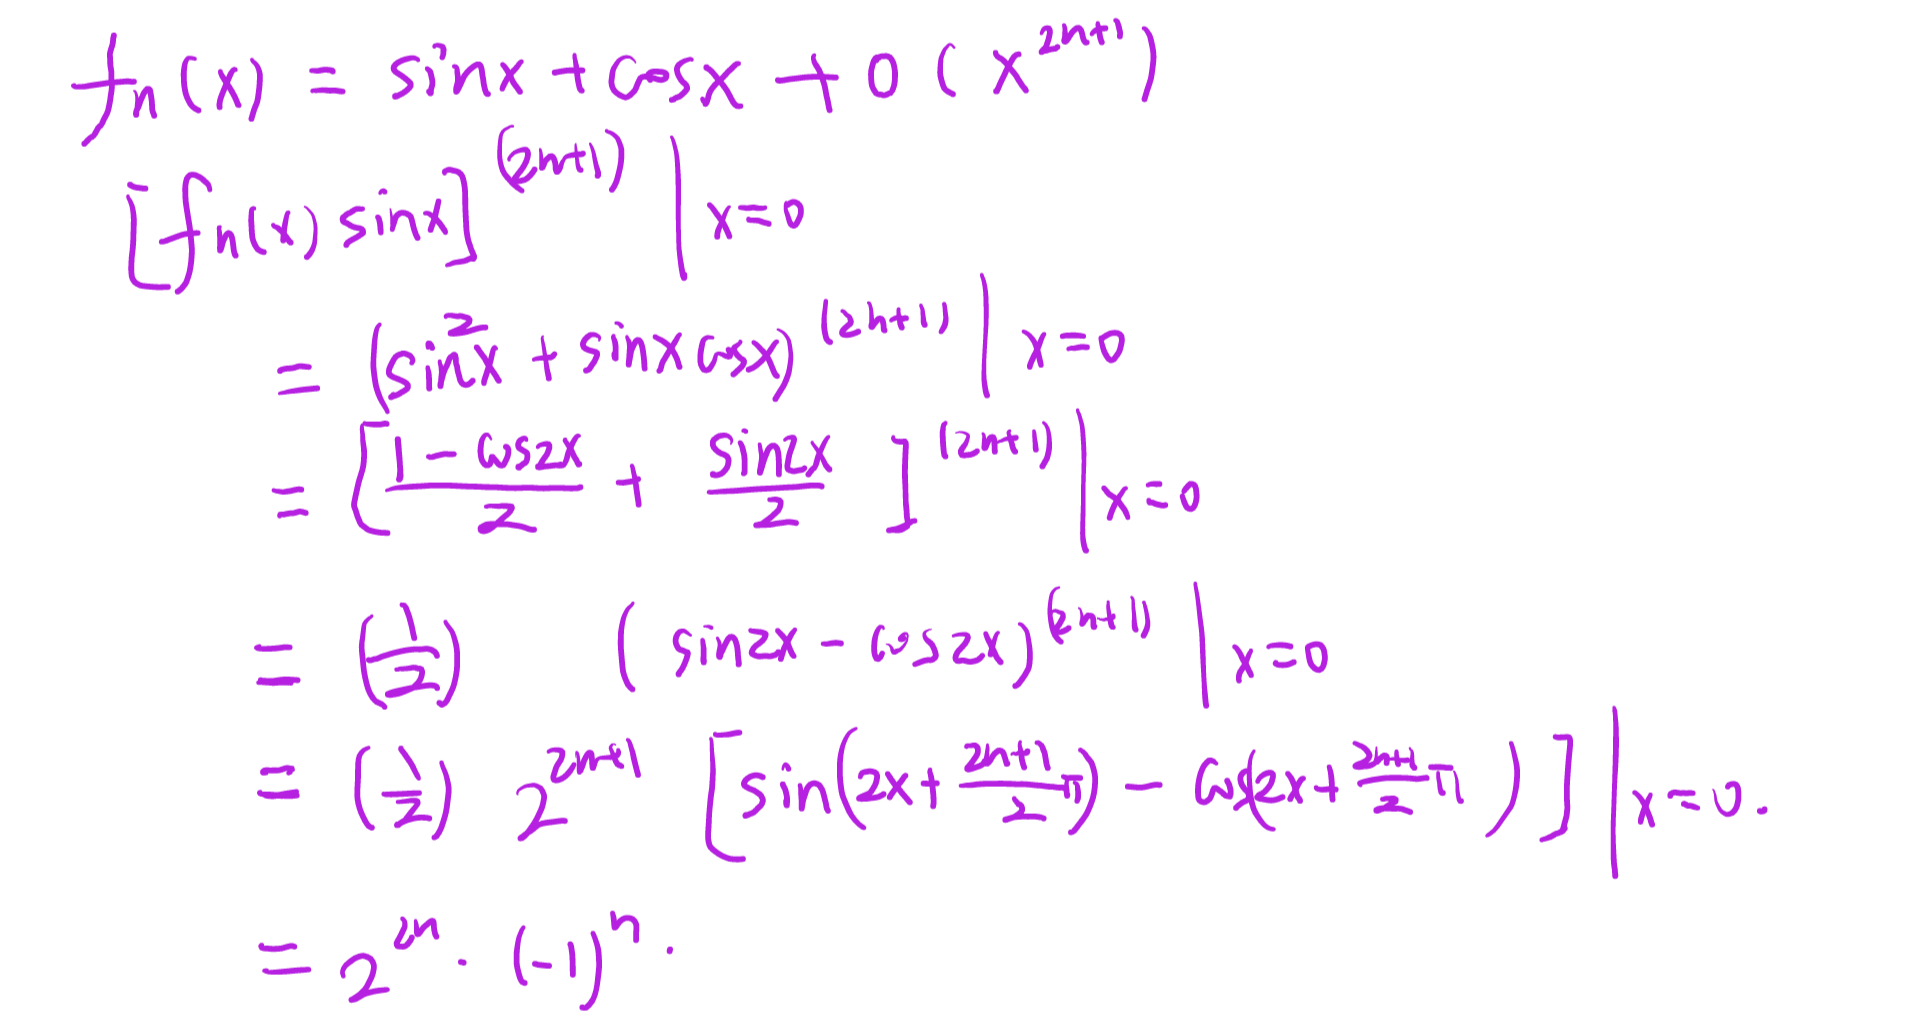 fn(x) = sinx + cosx + 0 ( x^{2n+1} )
[fn(x) sinx]^{(2n+1)} | x=0
= (sin²x + sinx cosx)^{(2n+1)} | x=0
= [ \frac{1-cos2x}{2} + \frac{sin2x}{2} ]^{(2n+1)} | x=0
= (\frac{1}{2}) ( sin2x - cos2x)^{(2n+1)} | x=0
= (\frac{1}{2}) 2^{2n+1} [sin(2x+\frac{2n+1}{2}π) - cos(2x+\frac{2n+1}{2}π)] | x=0.
= 2^{2n} · (-1)^n .